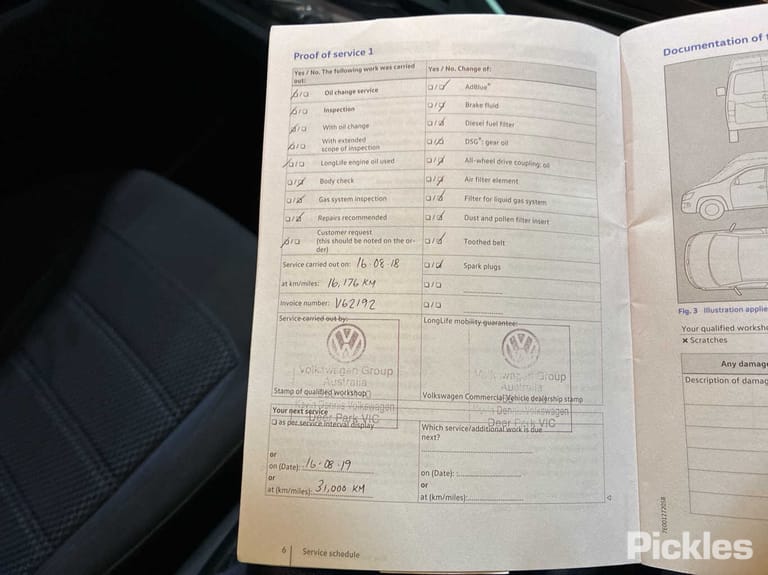 Proof of service 1
Yes / No. The following work was carried out:
Yes / No. Change of:
Oil change service
AdBlue®
Inspection
Brake fluid
With oil change
Diesel fuel filter
With extended scope of inspection
DSG®: gear oil
LongLife engine oil used
All-wheel drive coupling: oil
Body check
Air filter element
Gas system inspection
Filter for liquid gas system
Repairs recommended
Dust and pollen filter insert
Customer request
(this should be noted on the or-
der)
Toothed belt
Service carried out on: 16-08-18
Spark plugs
at km/miles: 16,176 KM
Invoice number: V62192
Service carried out by:
LongLife mobility guarantee:
Volkswagen Group
Australia
Volkswagen Group
Australia
Stamp of qualified workshop
Volkswagen Commercial Vehicle dealership stamp
Volkswagen
Deer Park VIC
Volkswagen
Deer Park VIC
Your next service
as per service interval display
Which service/additional work is due
next?
or
on (Date): 16-08-19
on (Date):
or
or
at (km/miles): 31,000 KM
at (km/miles):
6 Service schedule
Documentation of
Fig. 3 Illustration applie
Your qualified worksho
× Scratches
Any damag
Description of damag
Pickles